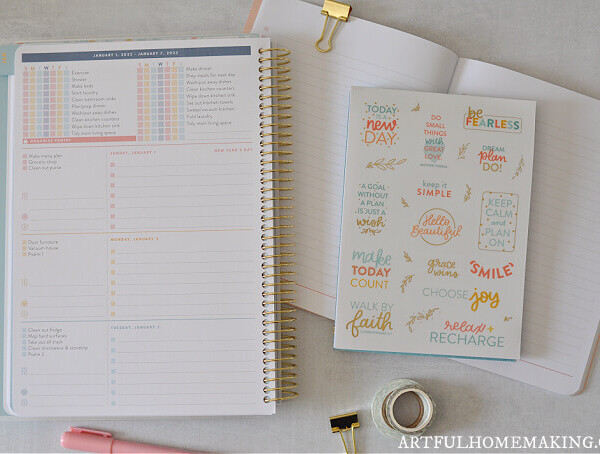 JANUARY 1, 2023 - JANUARY 7, 2023
S M T W T F S
S M T W T F S
Exercise
Shower
Make beds
Start laundry
Clean bathroom sinks
Meal prep dishes
Wash/put away dishes
Clean kitchen counters
Wipe down kitchen sink
Tidy main living space
Make dinner
Prep meals for next day
Wash/put away dishes
Clean kitchen counters
Wipe down kitchen sink
Set out kitchen towels
Fold laundry
Tidy main living space
ORGANIZE PANTRY
Make menu plan
Grocery shop
Clean out purse
SUNDAY, JANUARY 1
NEW YEAR'S DAY
Dust furniture
Vacuum house
Psalm 1
MONDAY, JANUARY 2
Clean out fridge
Mop hard surfaces
Take out all trash
Clean microwave & stovetop
Psalm 2
TUESDAY, JANUARY 3
TODAY IS
a
new
DAY
DO
SMALL
THINGS
with
GREAT
LOVE.
be
FEARLESS
DREAM
plan
DO!
A GOAL
WITHOUT
A PLAN
IS JUST A
wish
keep it
SIMPLE
Hello
Beautiful
KEEP
CALM
and
PLAN
ON
make
TODAY
COUNT
grace
wins
SMILE
CHOOSE joy
WALK BY
faith
relax +
RECHARGE
ARTFULHOMEMAKING.C